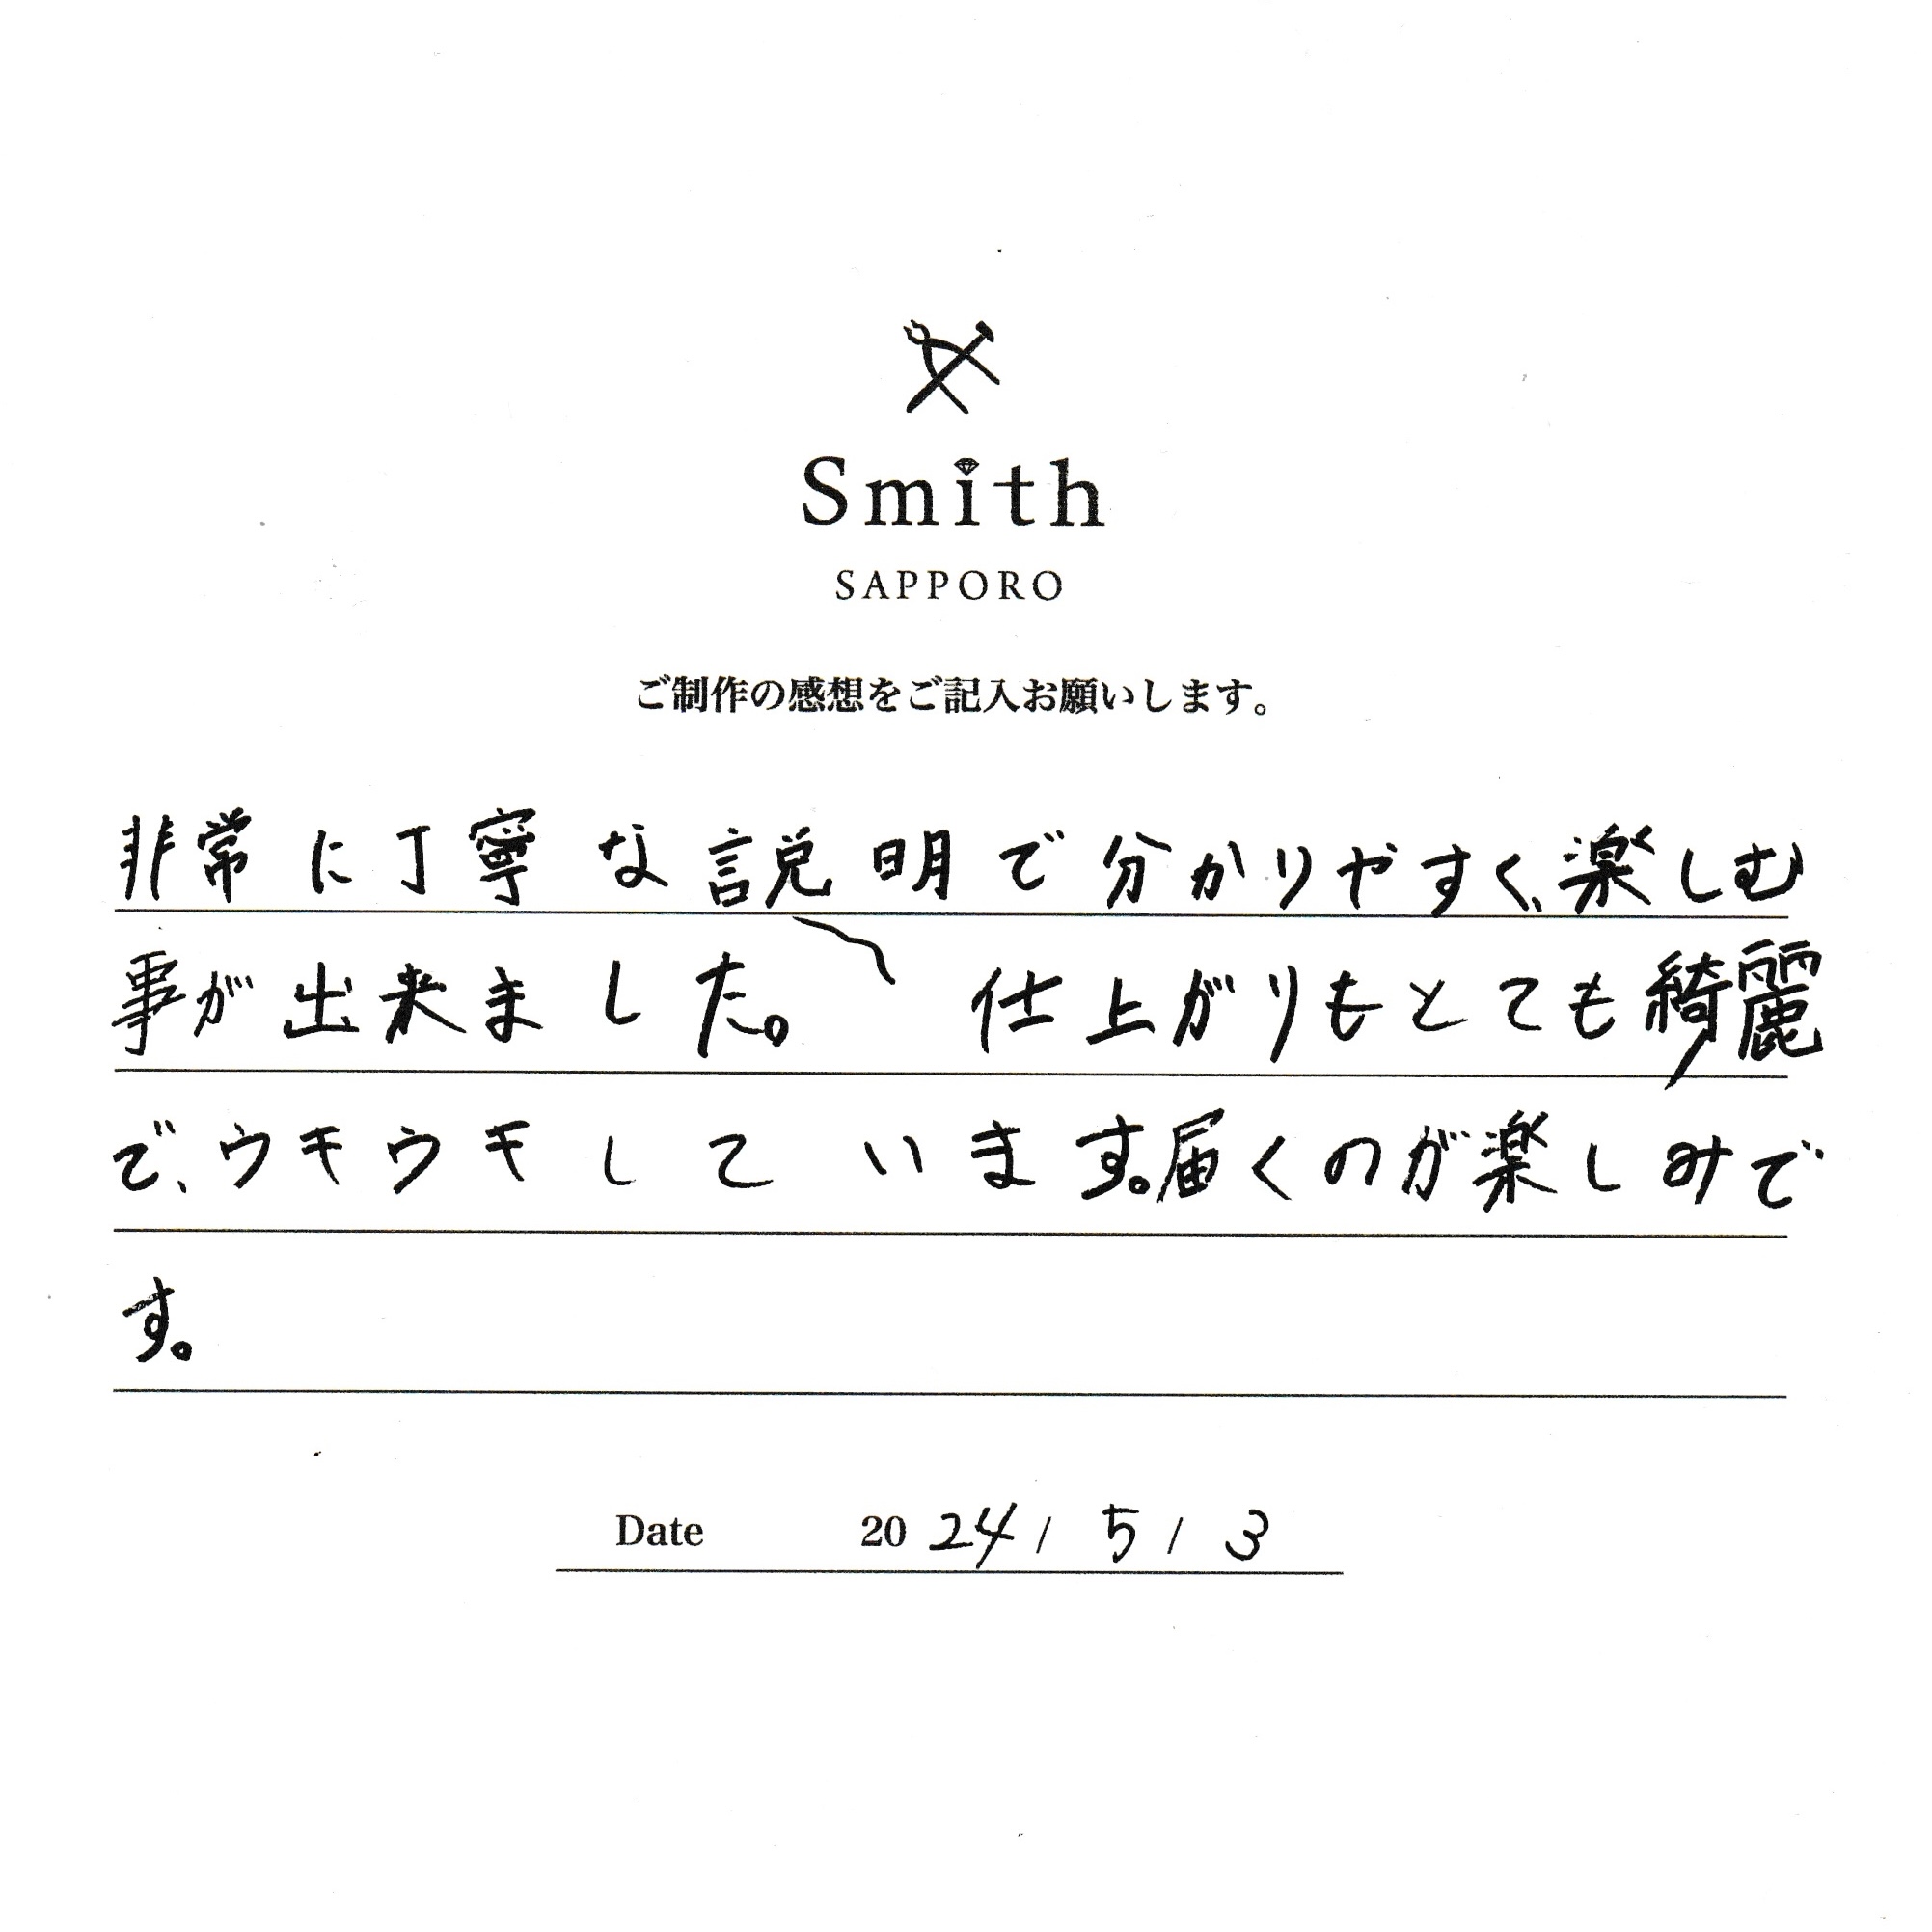 Smith
SAPPORO
ご制作の感想をご記入お願いします。
非常に丁寧な説明で分かりやすく、楽しむ
事が出来ました。 仕上がりもとても綺麗
で、ウキウキしています。届くのが楽しみで
す。
Date 2024 / 5 / 3